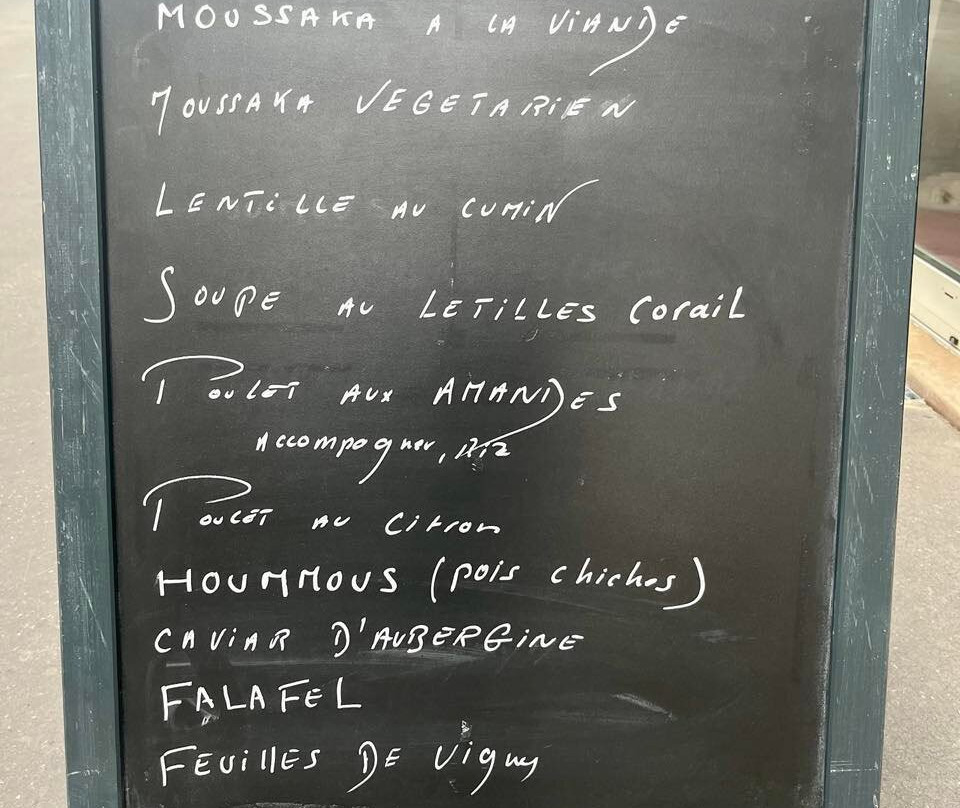 MOUSSAKA A LA VIANDE
MOUSSAKA VEGETARIEN
LENTILLE AU CUMIN
SOUPE AU LETILLES CORAIL
POULET AUX AMANDES
Accompagner, Riz
POULET AU Citron
HOUMMOUS (pois chiches)
CAVIAR D'AUBERGINE
FALAFEL
FEUILLES DE Vigny